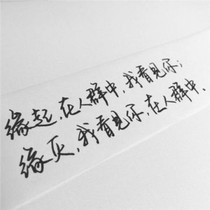 缘起，在人群中，我看见你；
缘灭，我看见你，在人群中.